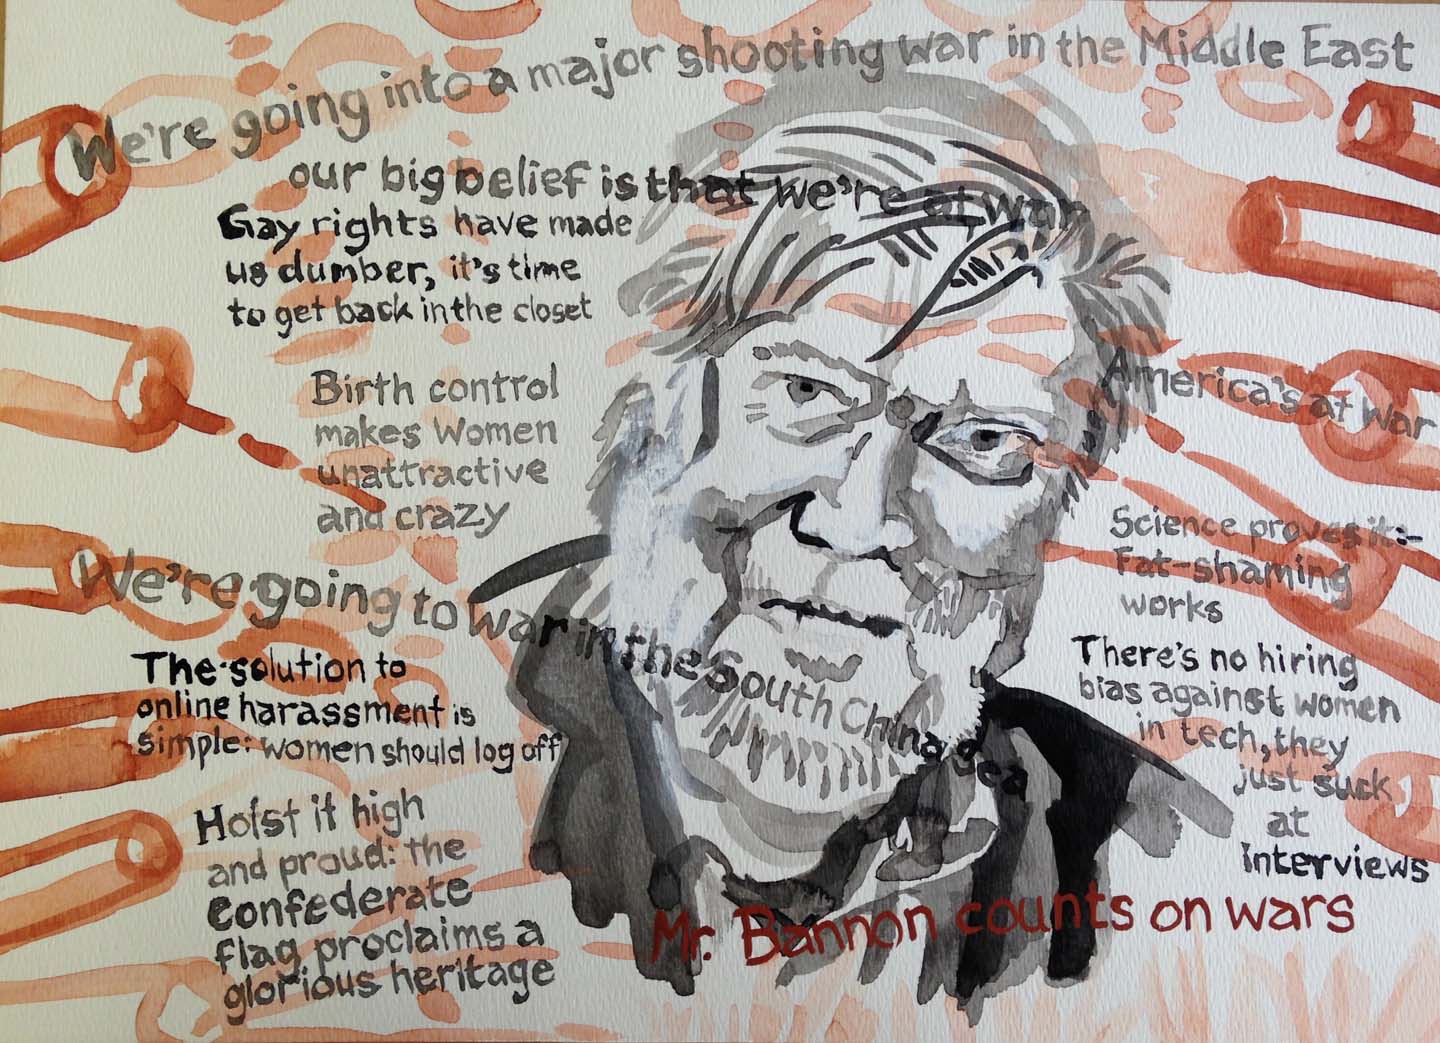 We're going into a major shooting war in the Middle East
our big belief is that we're at war
Gay rights have made
us dumber, it's time
to get back in the closet
Birth control
makes Women
unattractive
and crazy
America's at war
Science proves it:-
Fat-shaming
works
We're going to war in the South China Sea
The solution to
online harassment is
simple: women should log off
There's no hiring
bias against women
in tech, they
just suck
at
interviews
Hoist it high
and proud: the
confederate
flag proclaims a
glorious heritage
Mr. Bannon counts on wars